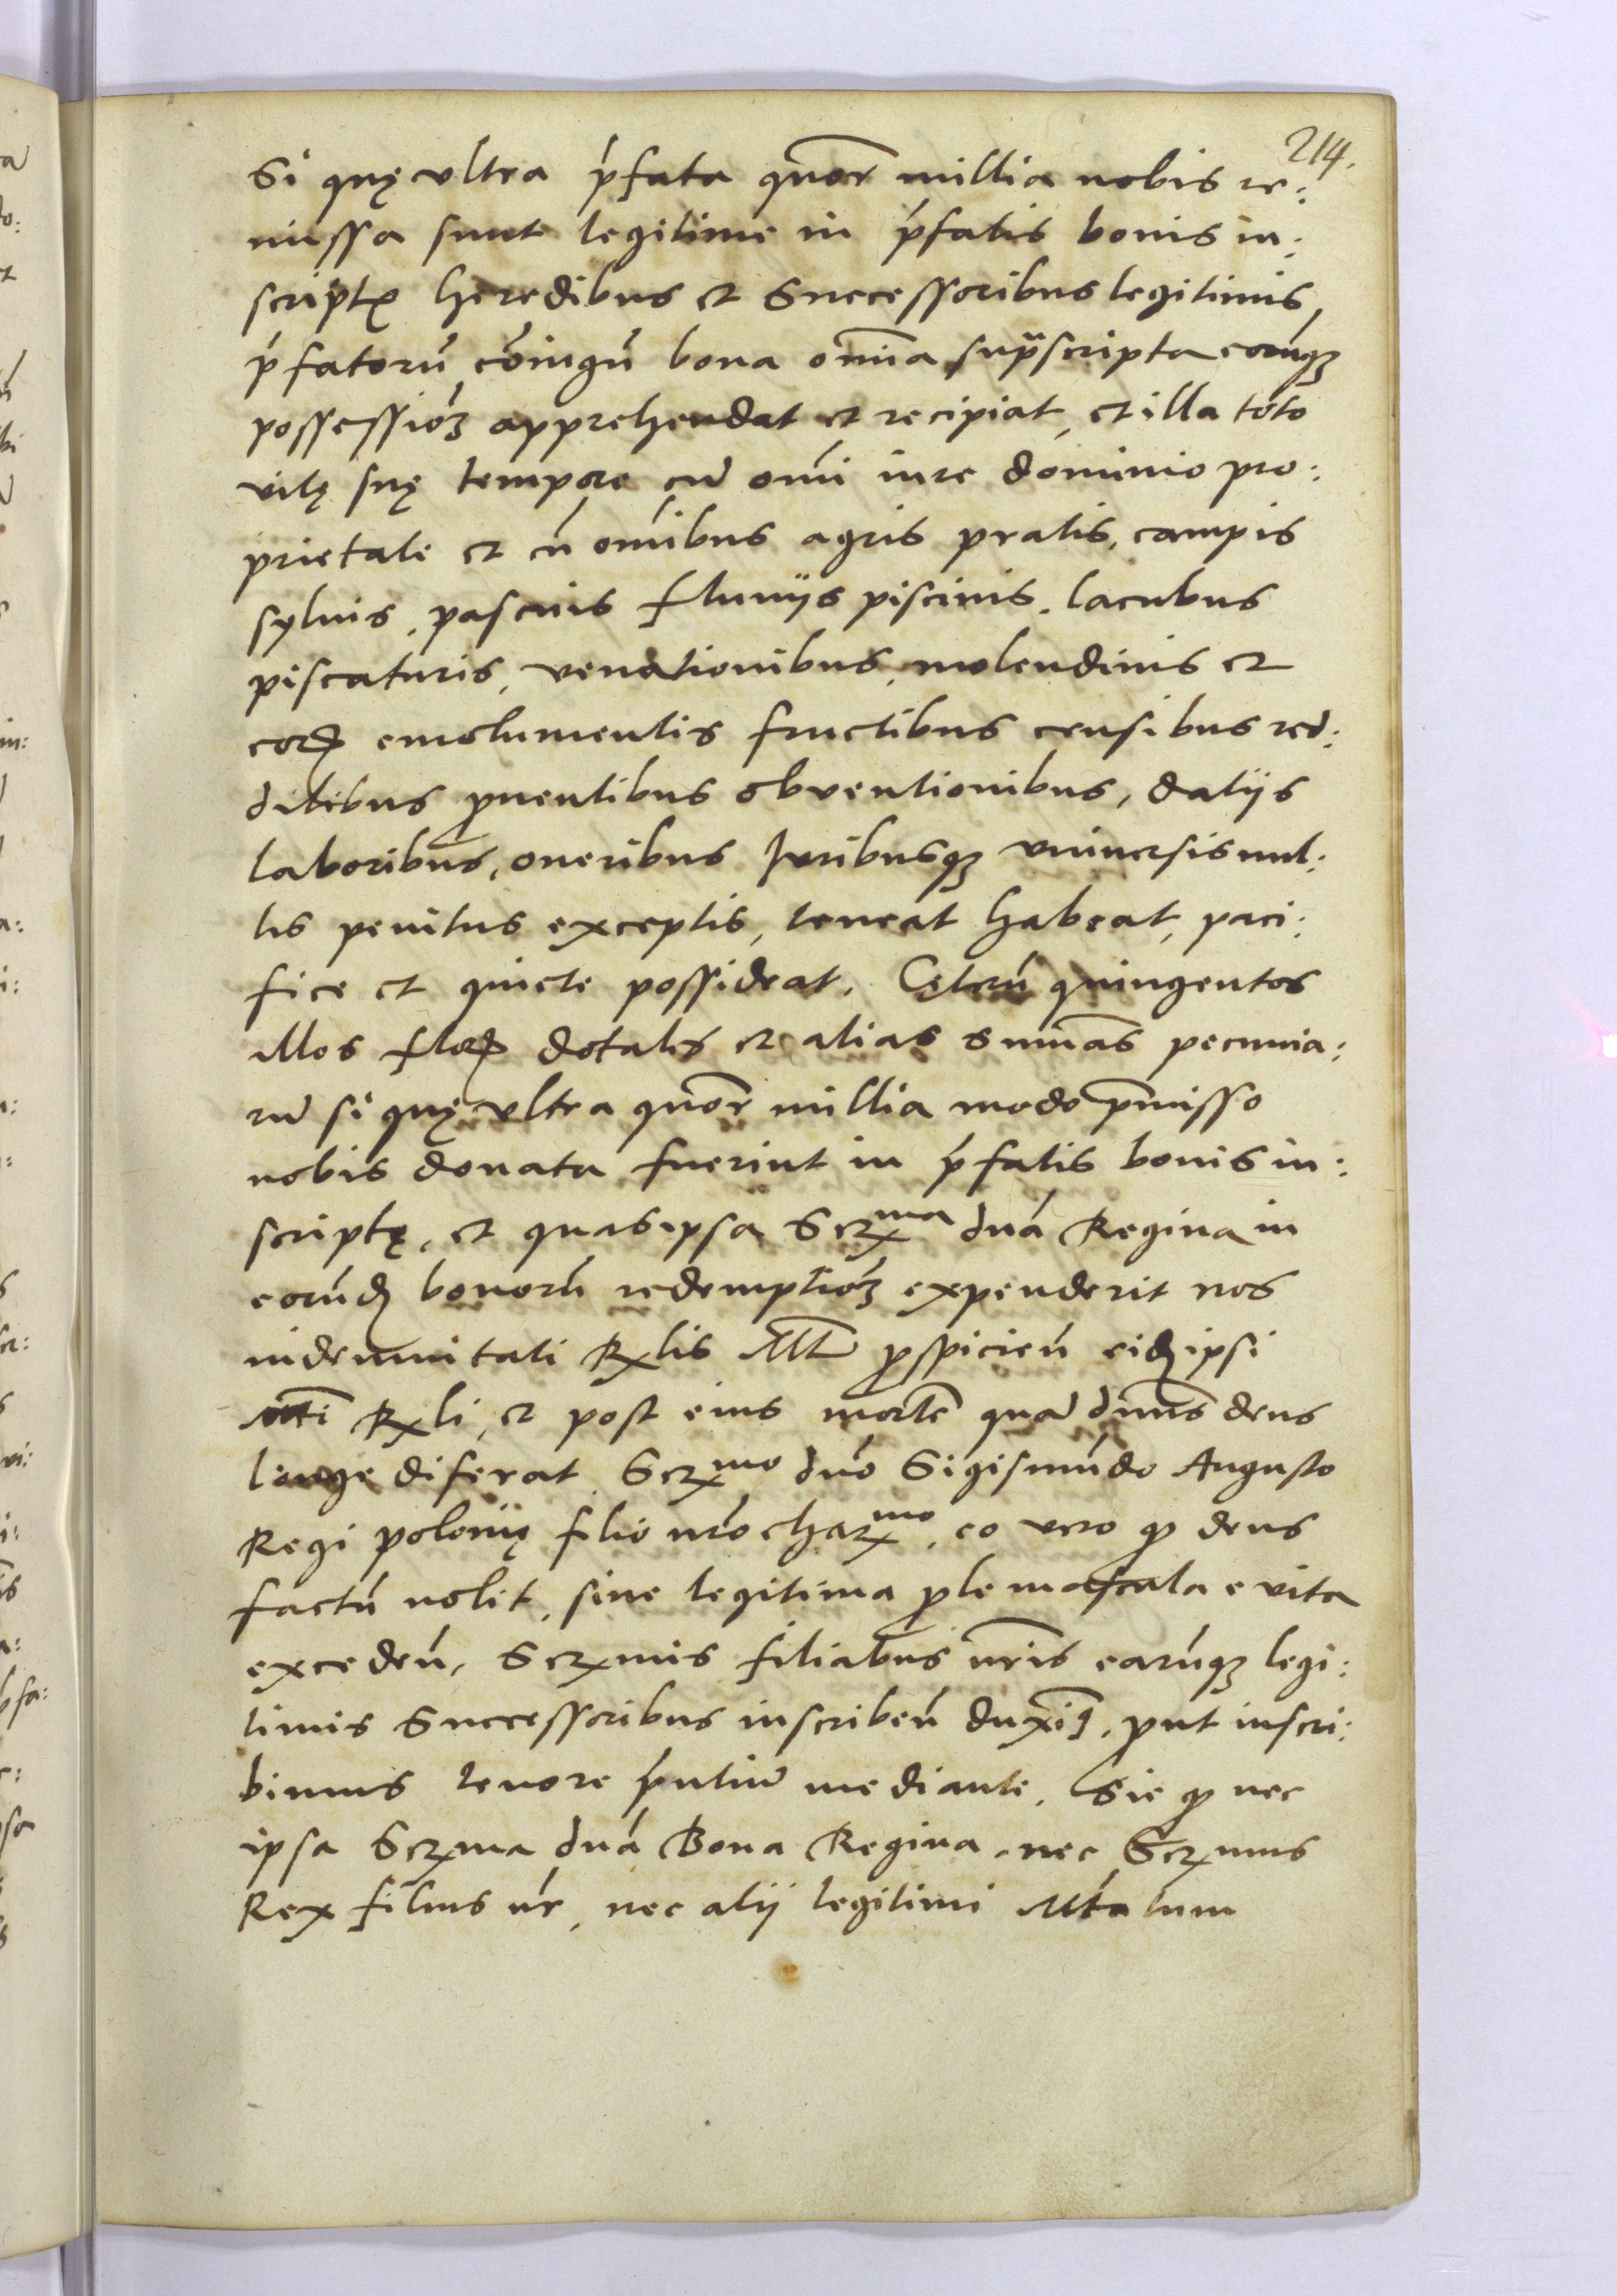 214.
Si quę ultra p̃fata quor̃ millia nobis re:
missa sunt legitime in p̃fatis bonis in:
script̃ heredibus et Successoribus legitimis,
p̃fatorũ cõiugũ bona om̃ia sup̃scripta eorũq3
possessiõ3 apprehendat et recipiat, et illa toto
vitę suę tempore cũ om̃i iure dominio pro:
prietate et cũ om̃ibus agris pratis, campis
syluis, pascuis fluuijs piscinis, lacubus
piscaturis, venationibus, molendinis et
eorꝝ emolumentis fructibus censibus red:
ditibus ꝓuentibus obventionibus, datijs
laboribus, oneribus Juribusq3 vniuersis nul:
lis penitus exceptis, teneat habeat, paci:
fice et quiete possideat. Cęterũ quingentos
illos florꝝ dotales et alias sum̃as pecunia:
rũ si quę vltra quor̃ millia modo p̃misso
nobis donata fuerint in p̃fatis bonis in:
scriptę, et quas ipsa Serma dña Regina in
eorũdꝫ bonorũ redemptiõ3 expenderit nos
indemnitati Rglis Mtis ꝓspicieñ eidꝫ ipsi
Mti Rgli, et post eius mortẽ quã dñus deus
longe diferat Sermo dño Sigismũdo Augusto
Regi polonię filio nr̃o charmo, eo vero ꝙ deus
factũ nolit, sine legitima ꝓle mascula e vita
excedeñ, Sermis filiabus nr̃is earũq3 legi:
timis Successoribus inscribeñ duximꝰ, ꝓut inscri:
bimus tenore p̃ntiũ mediante. Sic ꝙ nec
ipsa Serma dña Bona Regina, nec Sermus
Rex filius nr̃, nec alij legitimi Mta tum